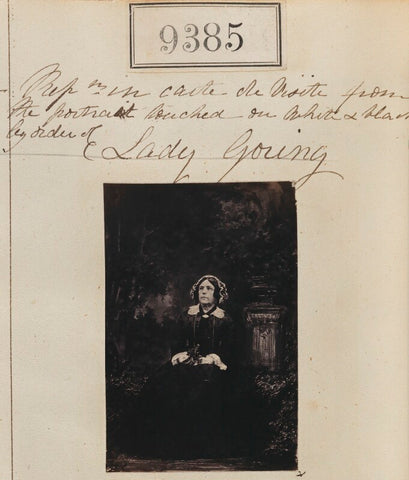 9385
Rep ns in carte de Visite from
the portrait touched on White & black
by order of
Lady Goring